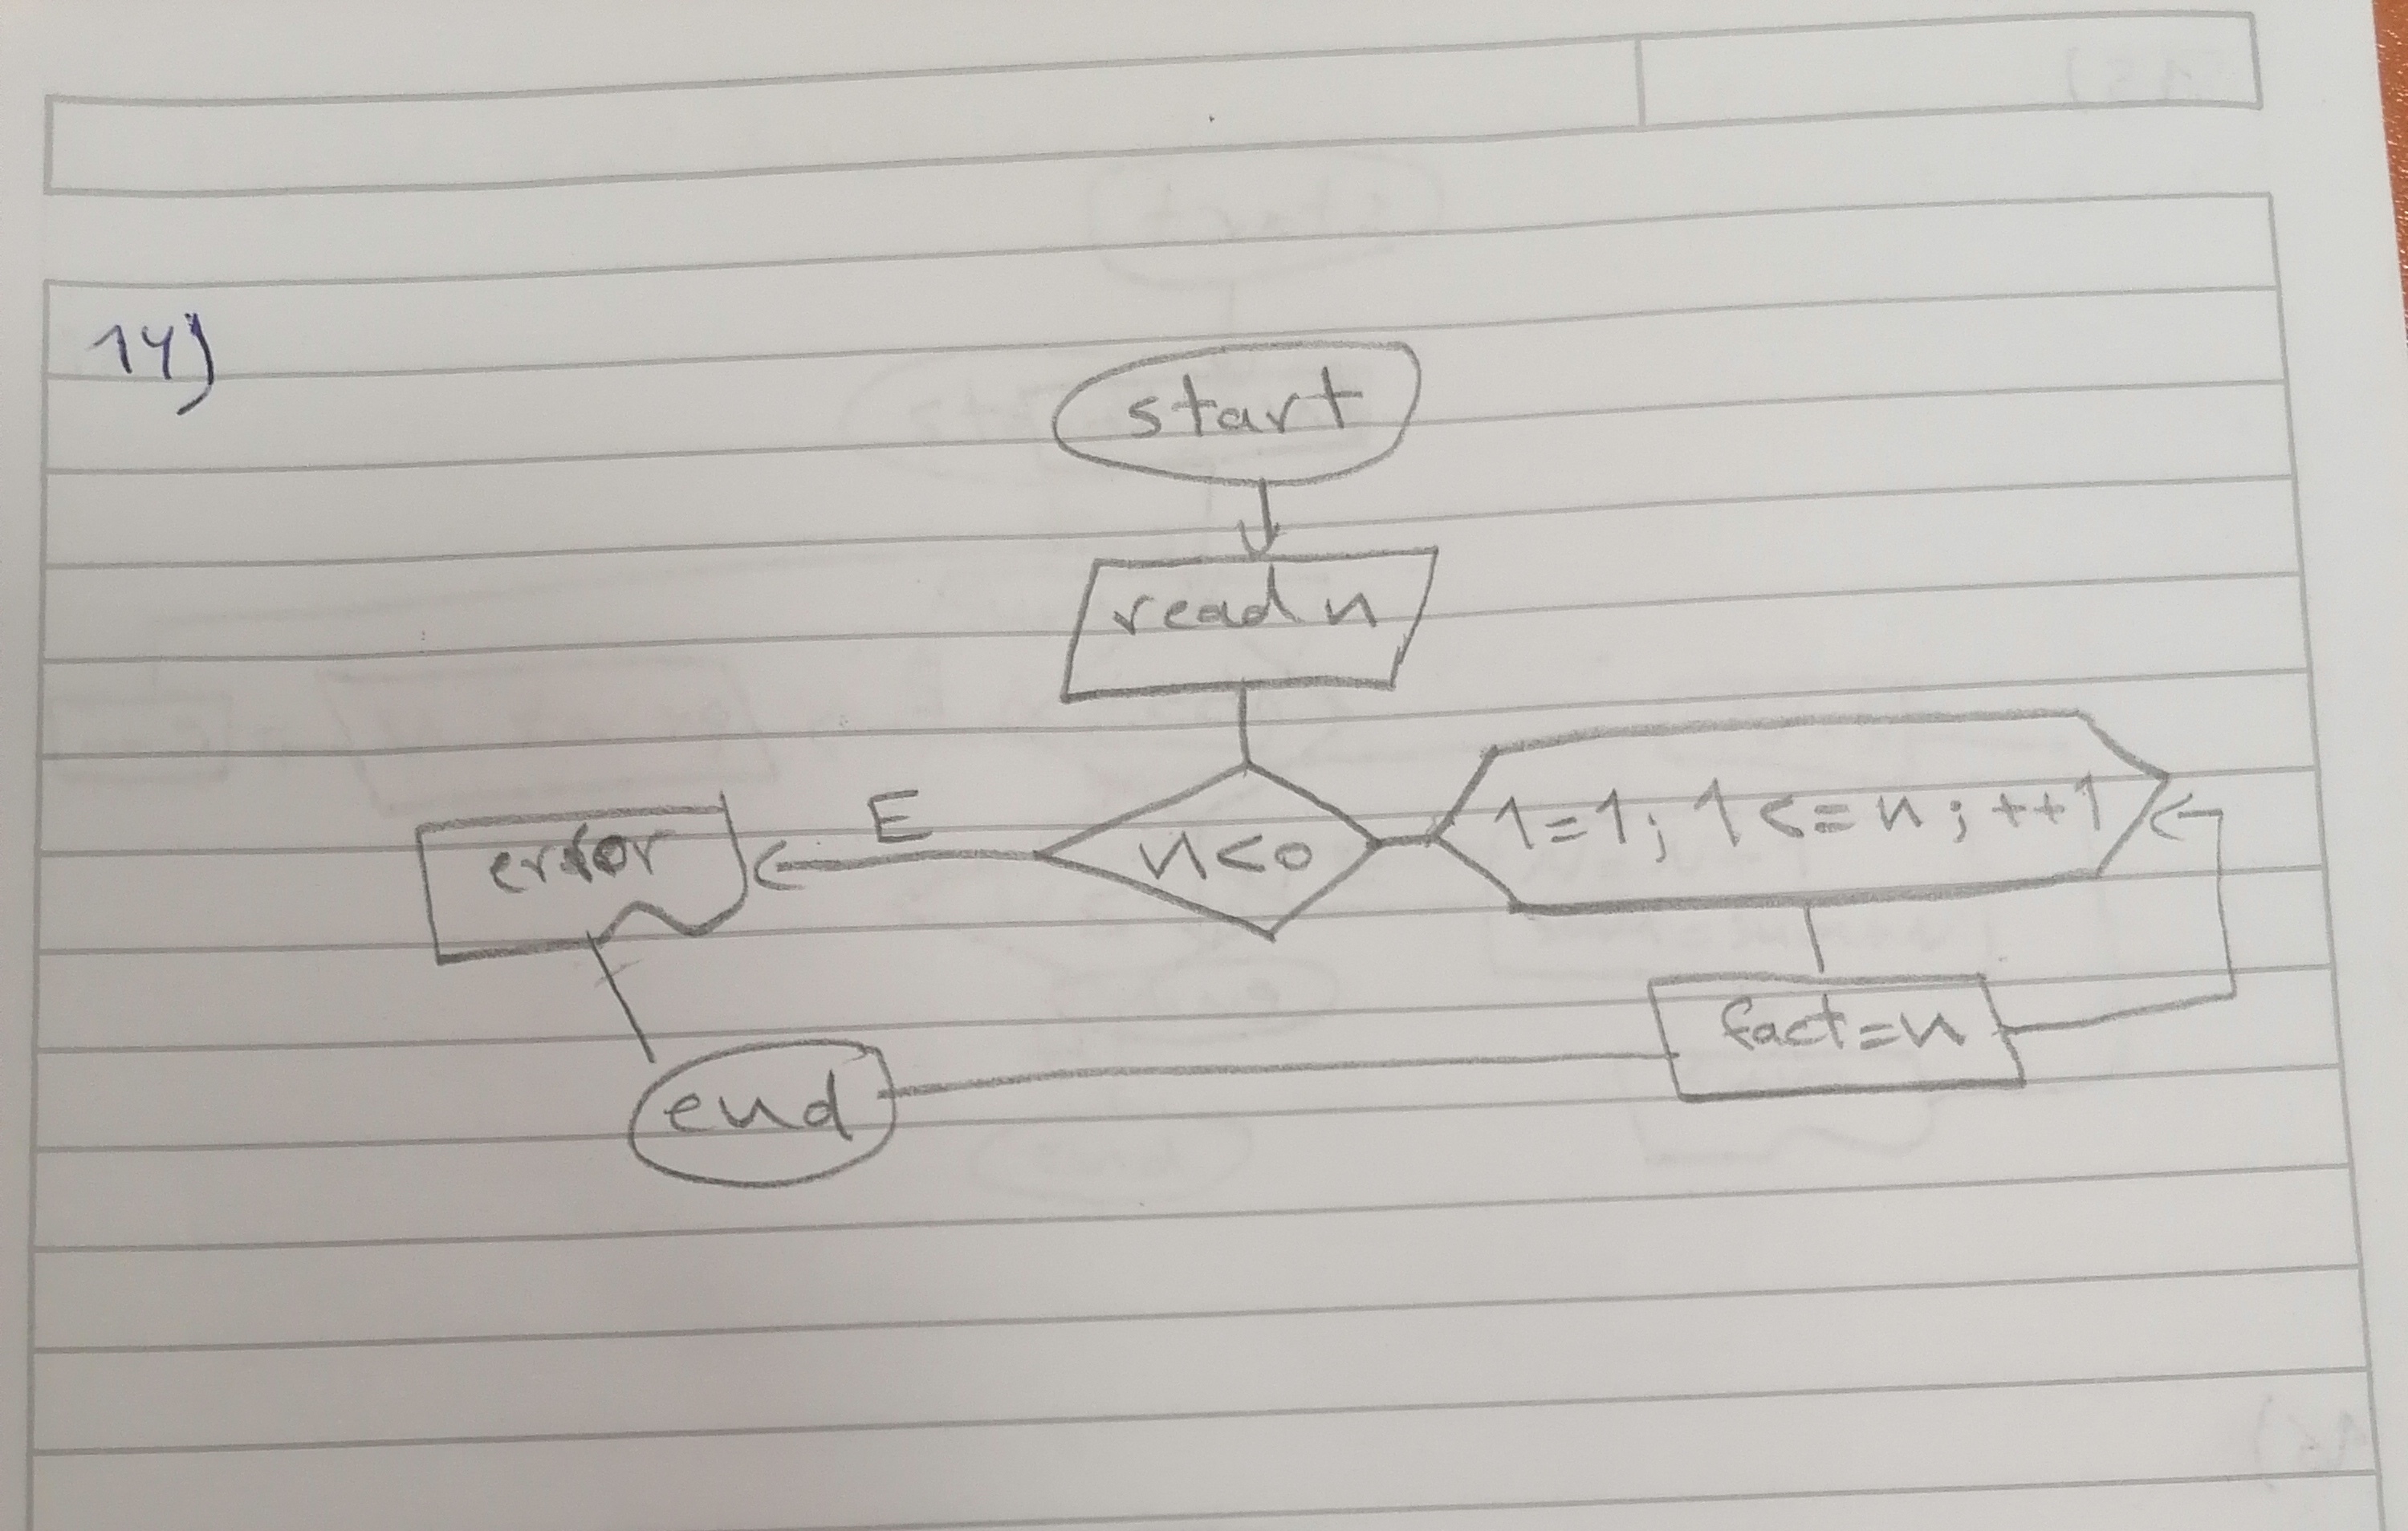 14)
start
read n
E
error
n<0
1=1; 1<=n; ++1
fact=n
end